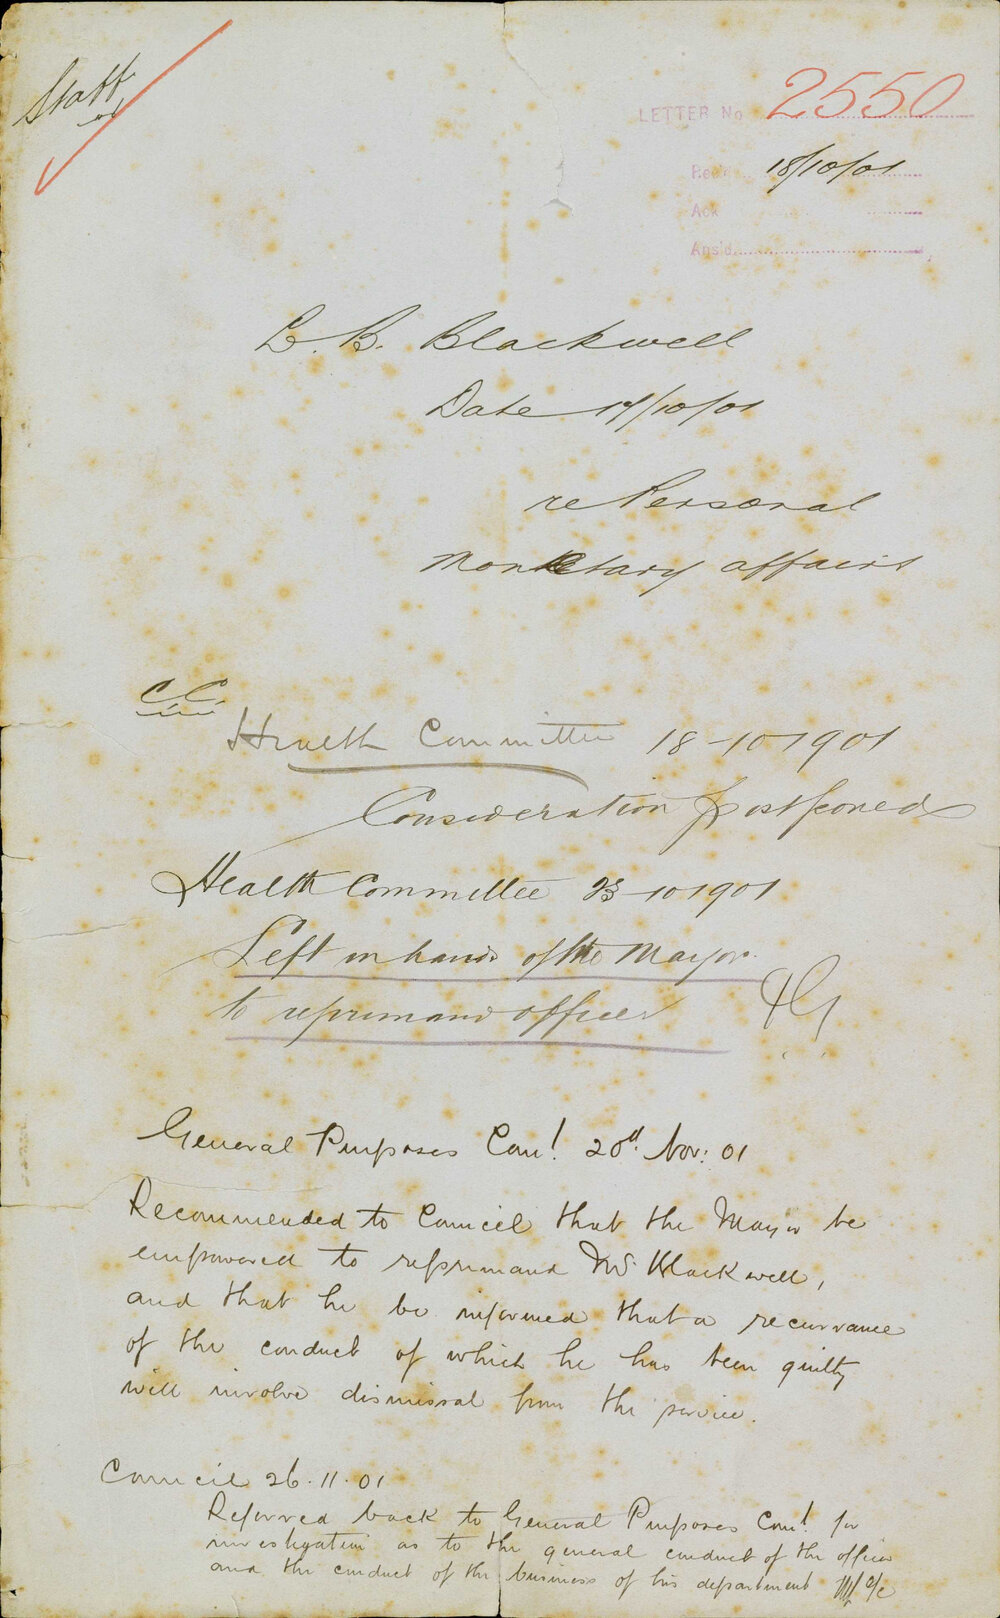 Staff
LETTER No 2550
Recd 18/10/01
Ack
Ansd
C. B. Blackwell
Date 17/10/01
re Personal
Monetary affairs
Health Committee 18-10-1901
Consideration postponed
Health Committee 23-10-1901
Left in hands of the Mayor
to reprimand officer
General Purposes Com! 20d. Nov: 01
Recommended to Council that the Mayor be
empowered to reprimand Mr. Blackwell,
and that he be informed that a recurrance
of the conduct of which he has been guilty
will involve dismissal from the service.
Council 26.11.01
Referred back to General Purposes Com! for
investigation as to the general conduct of the officer
and the conduct of the business of his department